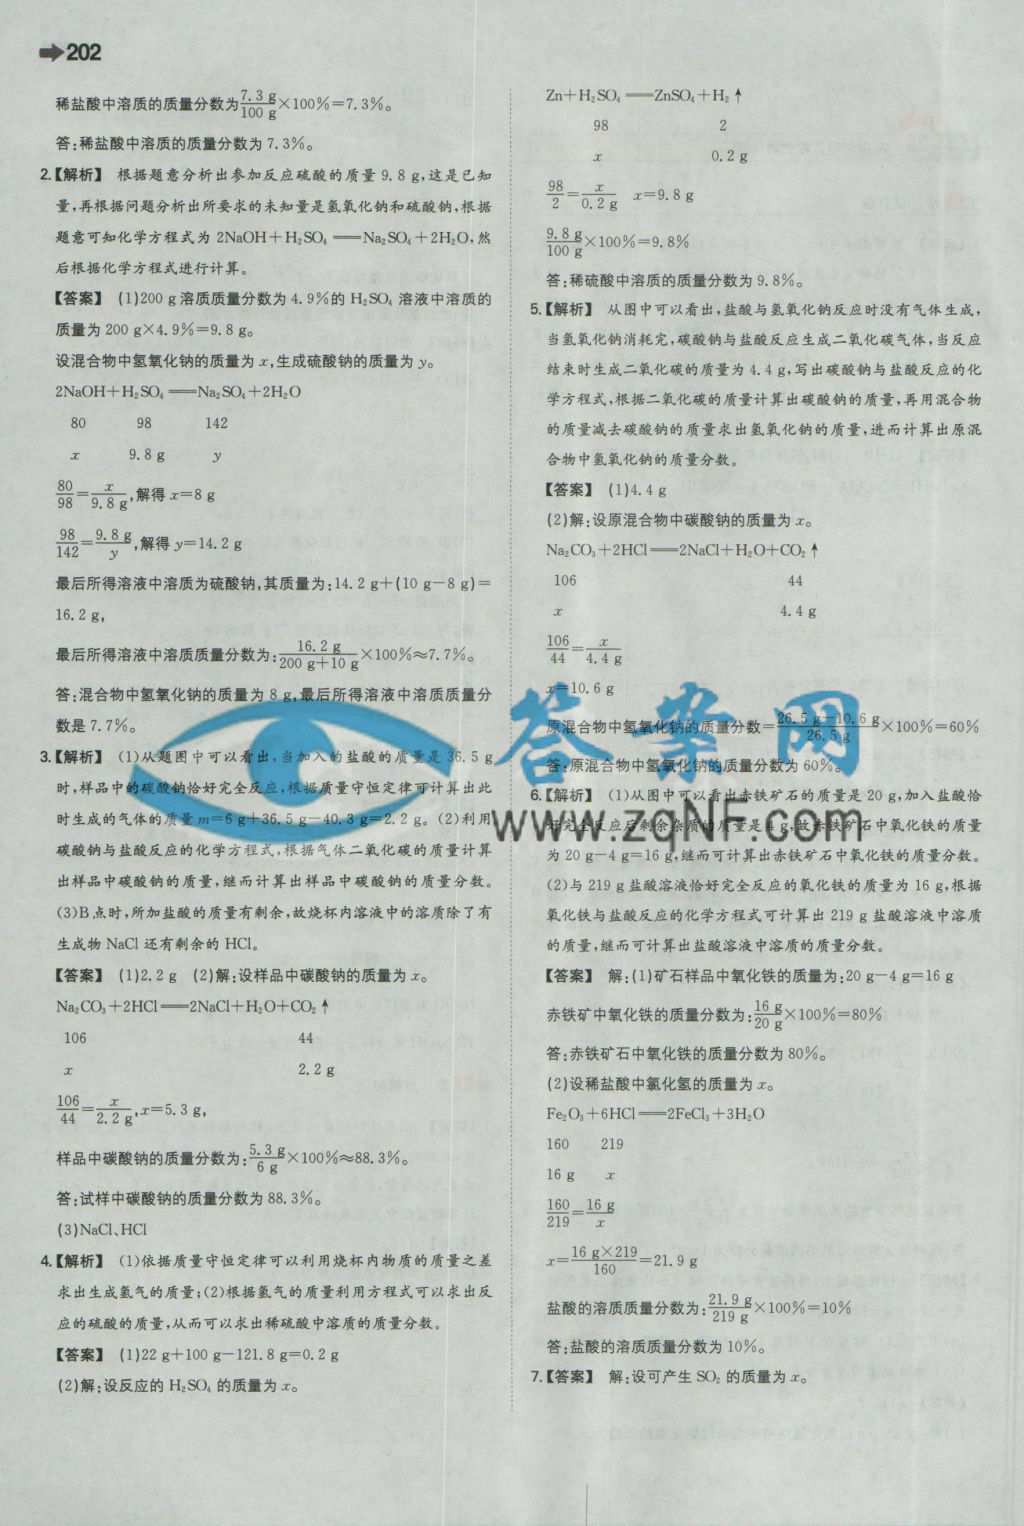 202
稀盐酸中溶质的质量分数为7.3 g/100 g×100%=7.3%。
答:稀盐酸中溶质的质量分数为7.3%。
2.【解析】 根据题意分析出参加反应硫酸的质量9.8 g,这是已知
量,再根据问题分析出所要求的未知量是氢氧化钠和硫酸钠,根据
题意可知化学方程式为 2NaOH+H₂SO₄══Na₂SO₄+2H₂O,然
后根据化学方程式进行计算。
【答案】 (1)200 g溶质质量分数为4.9%的 H₂SO₄ 溶液中溶质的
质量为200 g×4.9%=9.8 g。
设混合物中氢氧化钠的质量为x,生成硫酸钠的质量为y。
2NaOH+H₂SO₄══Na₂SO₄+2H₂O
80 98 142
x 9.8 g y
80/98=x/9.8 g,解得x=8 g
98/142=9.8 g/y,解得y=14.2 g
最后所得溶液中溶质为硫酸钠,其质量为:14.2 g+(10 g-8 g)=
16.2 g,
最后所得溶液中溶质质量分数为:16.2 g/200 g+10 g×100%≈7.7%。
答:混合物中氢氧化钠的质量为8 g,最后所得溶液中溶质质量分
数是7.7%。
3.【解析】 (1)从题图中可以看出,当加入的盐酸的质量是36.5 g
时,样品中的碳酸钠恰好完全反应,根据质量守恒定律可计算出此
时生成的气体的质量m=6 g+36.5 g-40.3 g=2.2 g。(2)利用
碳酸钠与盐酸反应的化学方程式,根据气体二氧化碳的质量计算
出样品中碳酸钠的质量,继而计算出样品中碳酸钠的质量分数。
(3)B点时,所加盐酸的质量有剩余,故烧杯内溶液中的溶质除了有
生成物 NaCl 还有剩余的 HCl。
【答案】 (1)2.2 g (2)解:设样品中碳酸钠的质量为x。
Na₂CO₃+2HCl══2NaCl+H₂O+CO₂↑
106 44
x 2.2 g
106/44=x/2.2 g,x=5.3 g,
样品中碳酸钠的质量分数为:5.3 g/6 g×100%≈88.3%。
答:试样中碳酸钠的质量分数为88.3%。
(3)NaCl、HCl
4.【解析】 (1)依据质量守恒定律可以利用烧杯内物质的质量之差
求出生成氢气的质量;(2)根据氢气的质量利用方程式可以求出反
应的硫酸的质量,从而可以求出稀硫酸中溶质的质量分数。
【答案】 (1)22 g+100 g-121.8 g=0.2 g
(2)解:设反应的 H₂SO₄ 的质量为x。
Zn+H₂SO₄══ZnSO₄+H₂↑
98 2
x 0.2 g
98/2=x/0.2 g x=9.8 g
9.8 g/100 g×100%=9.8%
答:稀硫酸中溶质的质量分数为9.8%。
5.【解析】 从图中可以看出,盐酸与氢氧化钠反应时没有气体生成,
当氢氧化钠消耗完,碳酸钠与盐酸反应生成二氧化碳气体,当反应
结束时生成二氧化碳的质量为4.4 g,写出碳酸钠与盐酸反应的化
学方程式,根据二氧化碳的质量计算出碳酸钠的质量,再用混合物
的质量减去碳酸钠的质量求出氢氧化钠的质量,进而计算出原混
合物中氢氧化钠的质量分数。
【答案】 (1)4.4 g
(2)解:设原混合物中碳酸钠的质量为x。
Na₂CO₃+2HCl══2NaCl+H₂O+CO₂↑
106 44
x 4.4 g
106/44=x/4.4 g
x=10.6 g
原混合物中氢氧化钠的质量分数=26.5 g-10.6 g/26.5 g×100%=60%
答:原混合物中氢氧化钠的质量分数为60%。
6.【解析】 (1)从图中可以看出赤铁矿石的质量是20 g,加入盐酸恰
好完全反应后剩余杂质的质量是4 g,故赤铁矿石中氧化铁的质量
为20 g-4 g=16 g,继而可计算出赤铁矿石中氧化铁的质量分数。
(2)与219 g盐酸溶液恰好完全反应的氧化铁的质量为16 g,根据
氧化铁与盐酸反应的化学方程式可计算出219 g盐酸溶液中溶质
的质量,继而可计算出盐酸溶液中溶质的质量分数。
【答案】 解:(1)矿石样品中氧化铁的质量为:20 g-4 g=16 g
赤铁矿中氧化铁的质量分数为:16 g/20 g×100%=80%
答:赤铁矿石中氧化铁的质量分数为80%。
(2)设稀盐酸中氯化氢的质量为x。
Fe₂O₃+6HCl══2FeCl₃+3H₂O
160 219
16 g x
160/219=16 g/x
x=16 g×219/160=21.9 g
盐酸的溶质质量分数为:21.9 g/219 g×100%=10%
答:盐酸的溶质质量分数为10%。
7.【答案】 解:设可产生 SO₂ 的质量为x。
答案网
www.zqNF.com